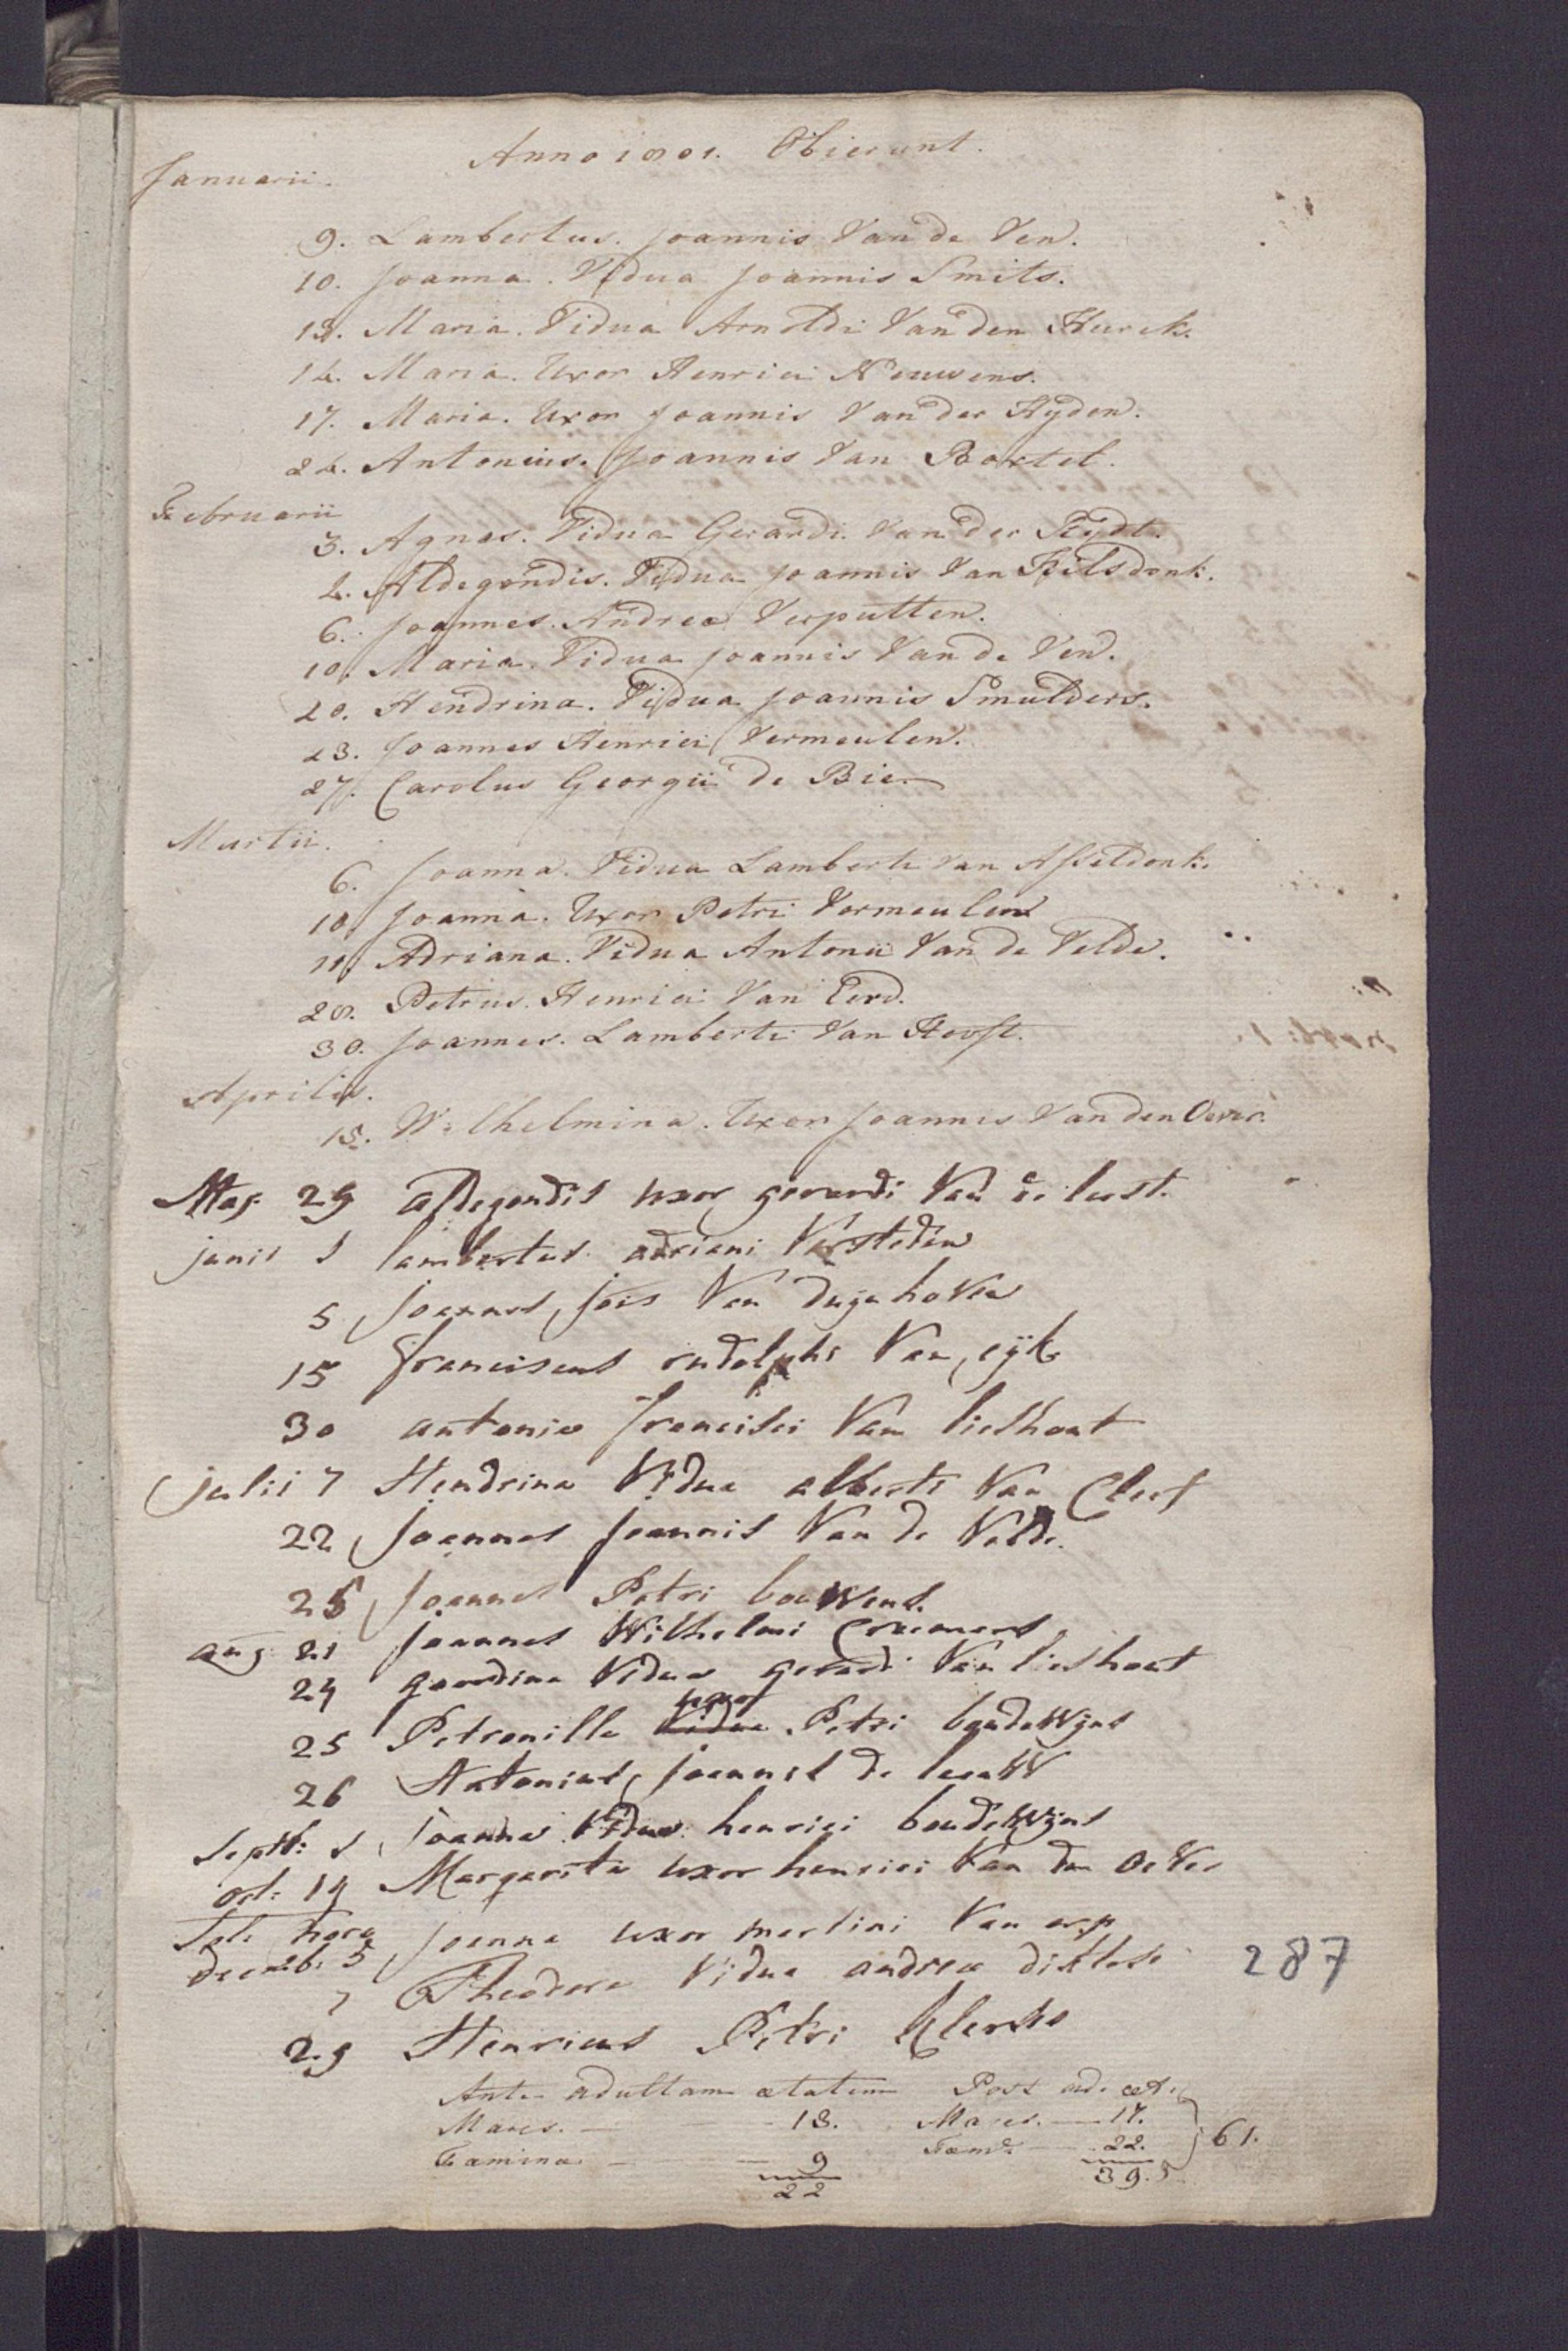 Anno 1801. Obierunt.
Januarii.
9. Lambertus. Joannis Van de Ven.
10. Joanna. Vidua Joannis Smits.
13. Maria. Vidua Arnoldi Van den Hurck.
14. Maria. Uxor Henrici Neuwens.
17. Maria. Uxor Joannis Van der Hyden.
24. Antonius. Joannis Van Boxtel.
Februarii
3. Agnes. Vidua Gerardi Van der Heydt.
4. Aldegondis. Vidua Joannis Van Hilsdonk.
6. Joannes. Andreæ Verputten.
10. Maria. Vidua Joannis Van de Ven.
20. Hendrina. Vidua Joannis Smulders.
23. Joannes Henrici Vermeulen.
27. Carolus Georgii de Bie.
Martii.
6. Joanna. Vidua Lamberti Van Asseldonk.
10. Joanna. Uxor Petri Vermeulen
11. Adriana. Vidua Antonii Van de Velde.
28. Petrus. Henrici Van Eerd.
30. Joannes. Lamberti Van Hooft.
Aprilis.
15. Wilhelmina. Uxor Joannis Van den Oever.
Maj 29 aldegondis uxor gerardi Van de leest.
junii 1 lambertus adriani Versteden
5 Joannes Jois Van dugenhoven
15 franciscus rudolphi Van eijk
30 antonia francisci Van lieshout
julii 7 Hendrina Vidua alberti Van Cleef
22 Joannes Joannis Van de Velde.
25 Joannes Petri bouwens.
aug. 21 joannes Wilhelmi
24 gerardina Vidua gerardi Van lieshout
uxor
25 Petronilla Vidua Petri boudewijns
26 Antonius Joannis de leeuw
septb: 1 Joanna Vidua henrici boudewijns
oct: 14 Margarita uxor henrici Van den oever
decemb: 5 Joanna uxor martini Van erp
7 Theodora Vidua andreæ
29 Henricus Petri Klerks
287
Ante adultam ætatem Post ad. æt.
Mares. — 13. Mares. — 17.
Fæminæ — 9 Fæmæ — 22.
61.
22 39.